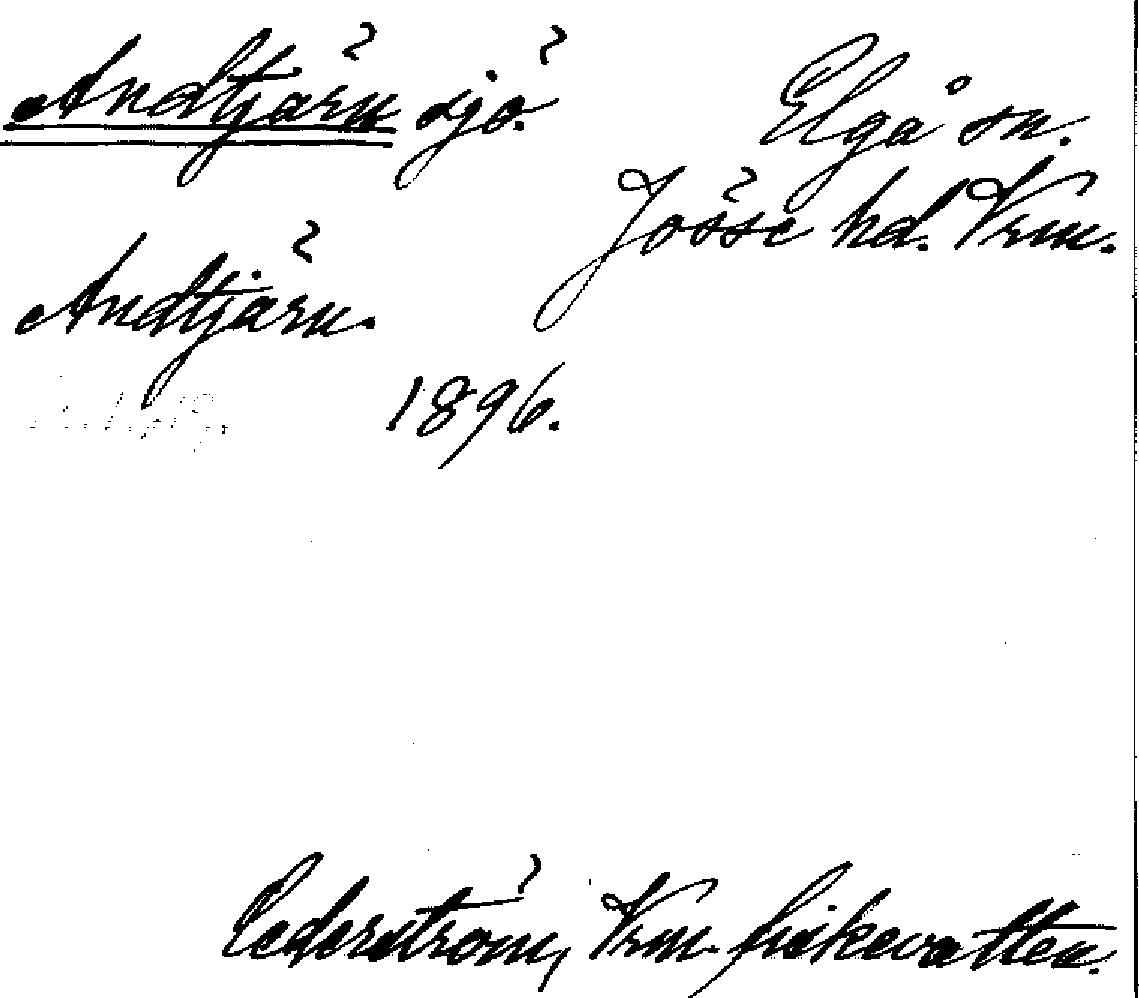 Andtjärn sjö.
Elgå sn.
Jösse hd. Vrm.
Andtjärn.
1896.
Cederström, Vrm. fiskevatten.